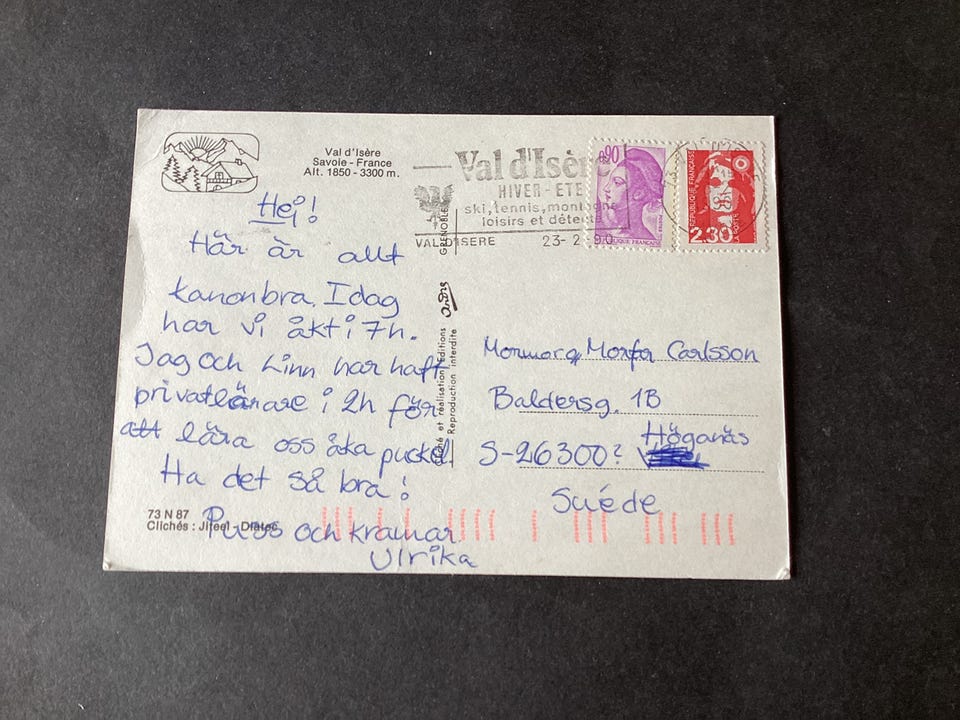 Val d'Isère
Savoie - France
Alt. 1850 - 3300 m.
Hej!
Här är allt
kanonbra. Idag
har vi åkt i 7h.
Jag och Linn har haft
privatlärare i 2h för
att lära oss åka puckel
Ha det så bra!
Puss och kramar
Ulrika
73 N 87
Clichés :
GRENOBLE
André
et réalisation Editions
Reproduction interdite
Val d'Isère
HIVER - ETE
ski, tennis, montagne
loisirs et détente
VAL D'ISERE 23- 2
0,90
REPUBLIQUE FRANÇAISE
2,30
LA POSTE
Mormor o Morfar Carlsson
Baldersg. 1B
S-26300? Höganäs
Suéde